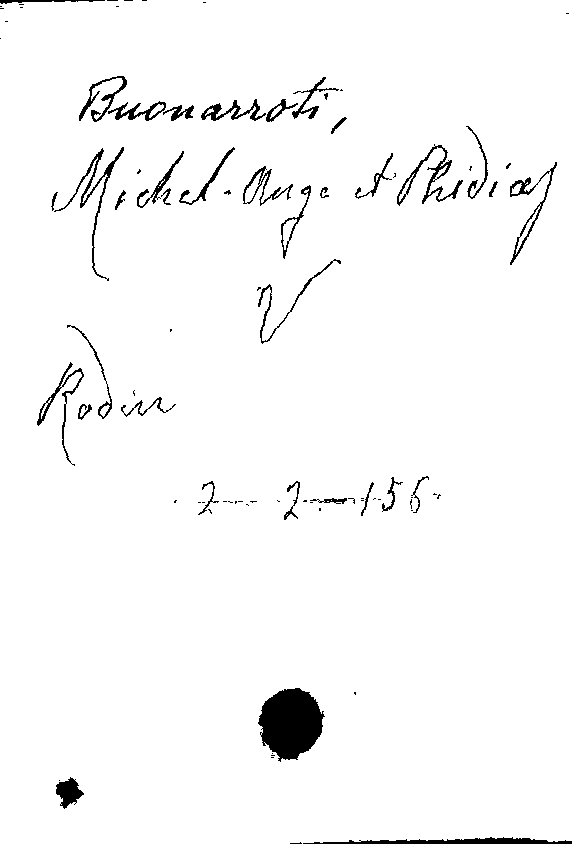 Buonarroti,
Michel-Ange et Phidias
V
Rodin
2 — 2 — 156